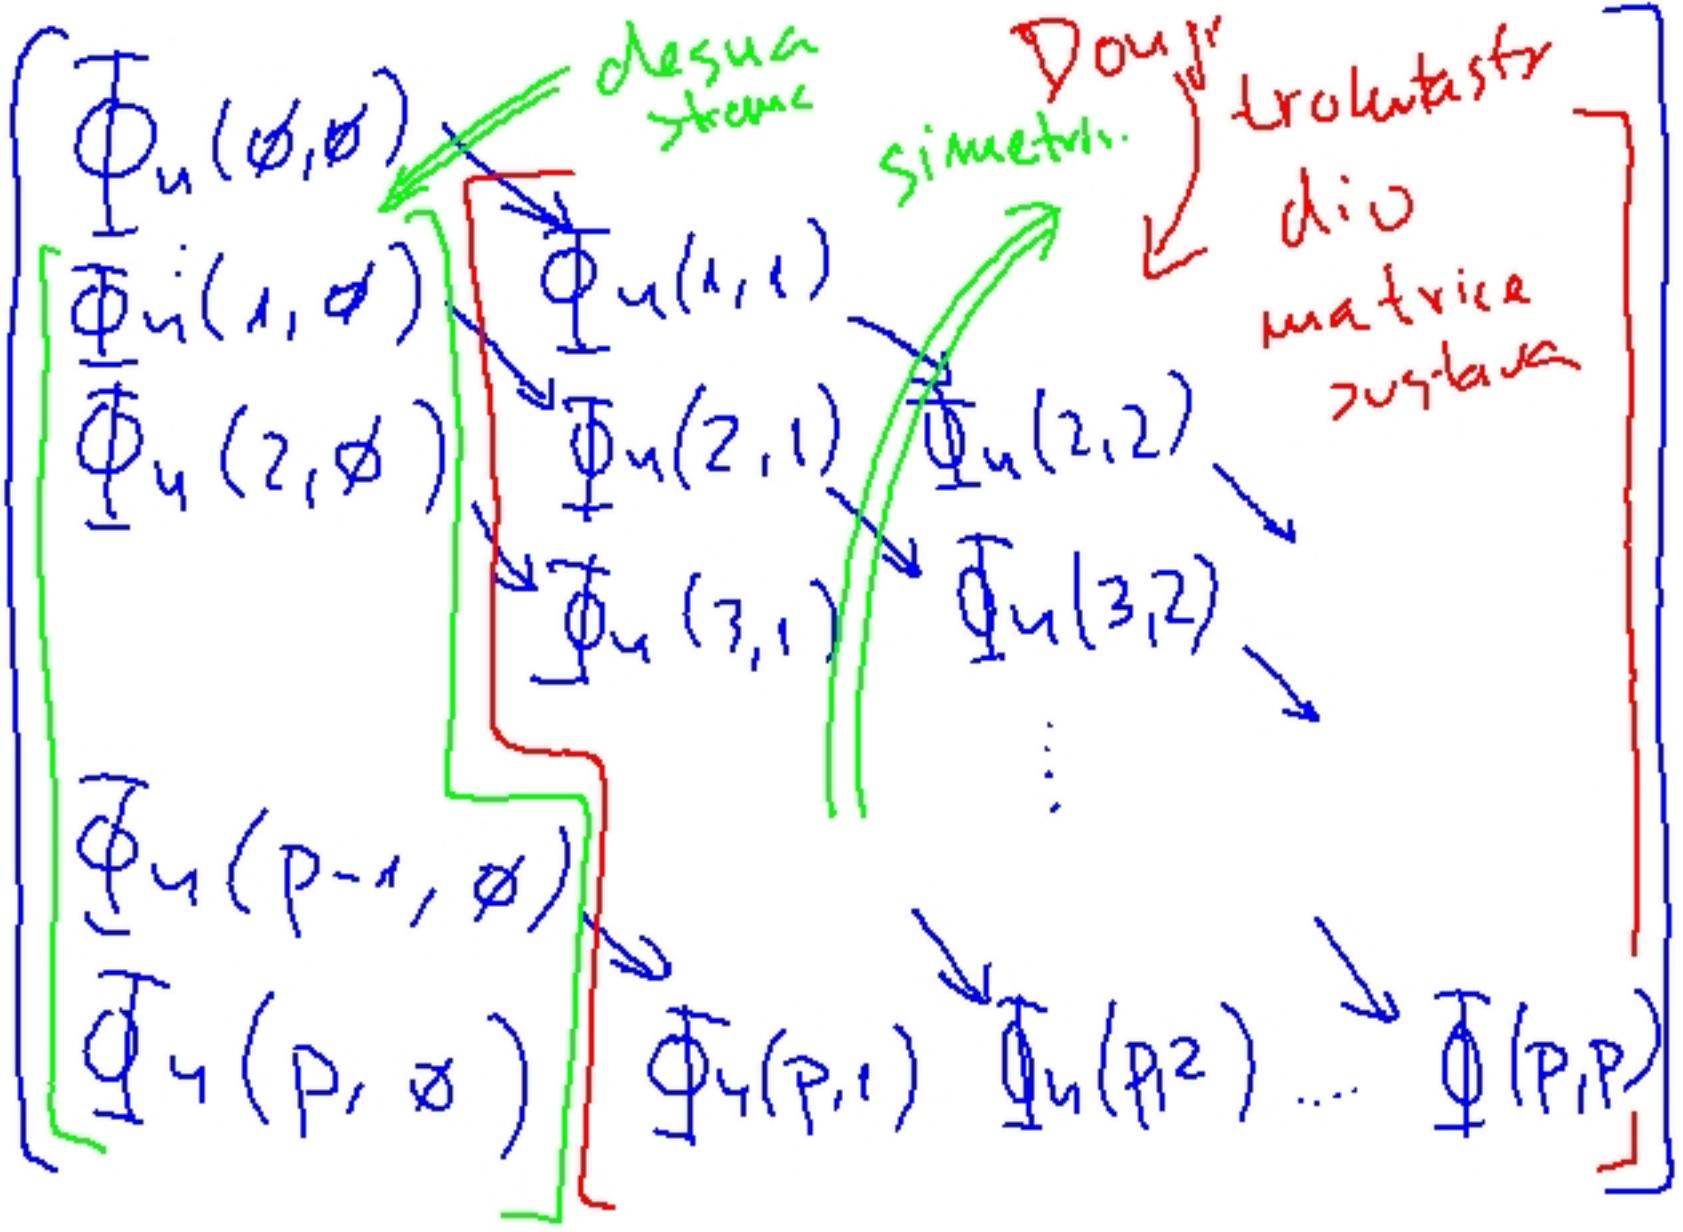 desna
strana
simetrič.
Donji
trokutasti
dio
matrice
sustava
Φn(∅,∅)
Φn(1,∅) Φn(1,1)
Φn(2,∅) Φn(2,1) Φn(2,2)
Φn(3,1) Φn(3,2)
Φn(p-1,∅)
Φn(p,∅) Φn(p,1) Φn(p,2) .... Φ(p,p)